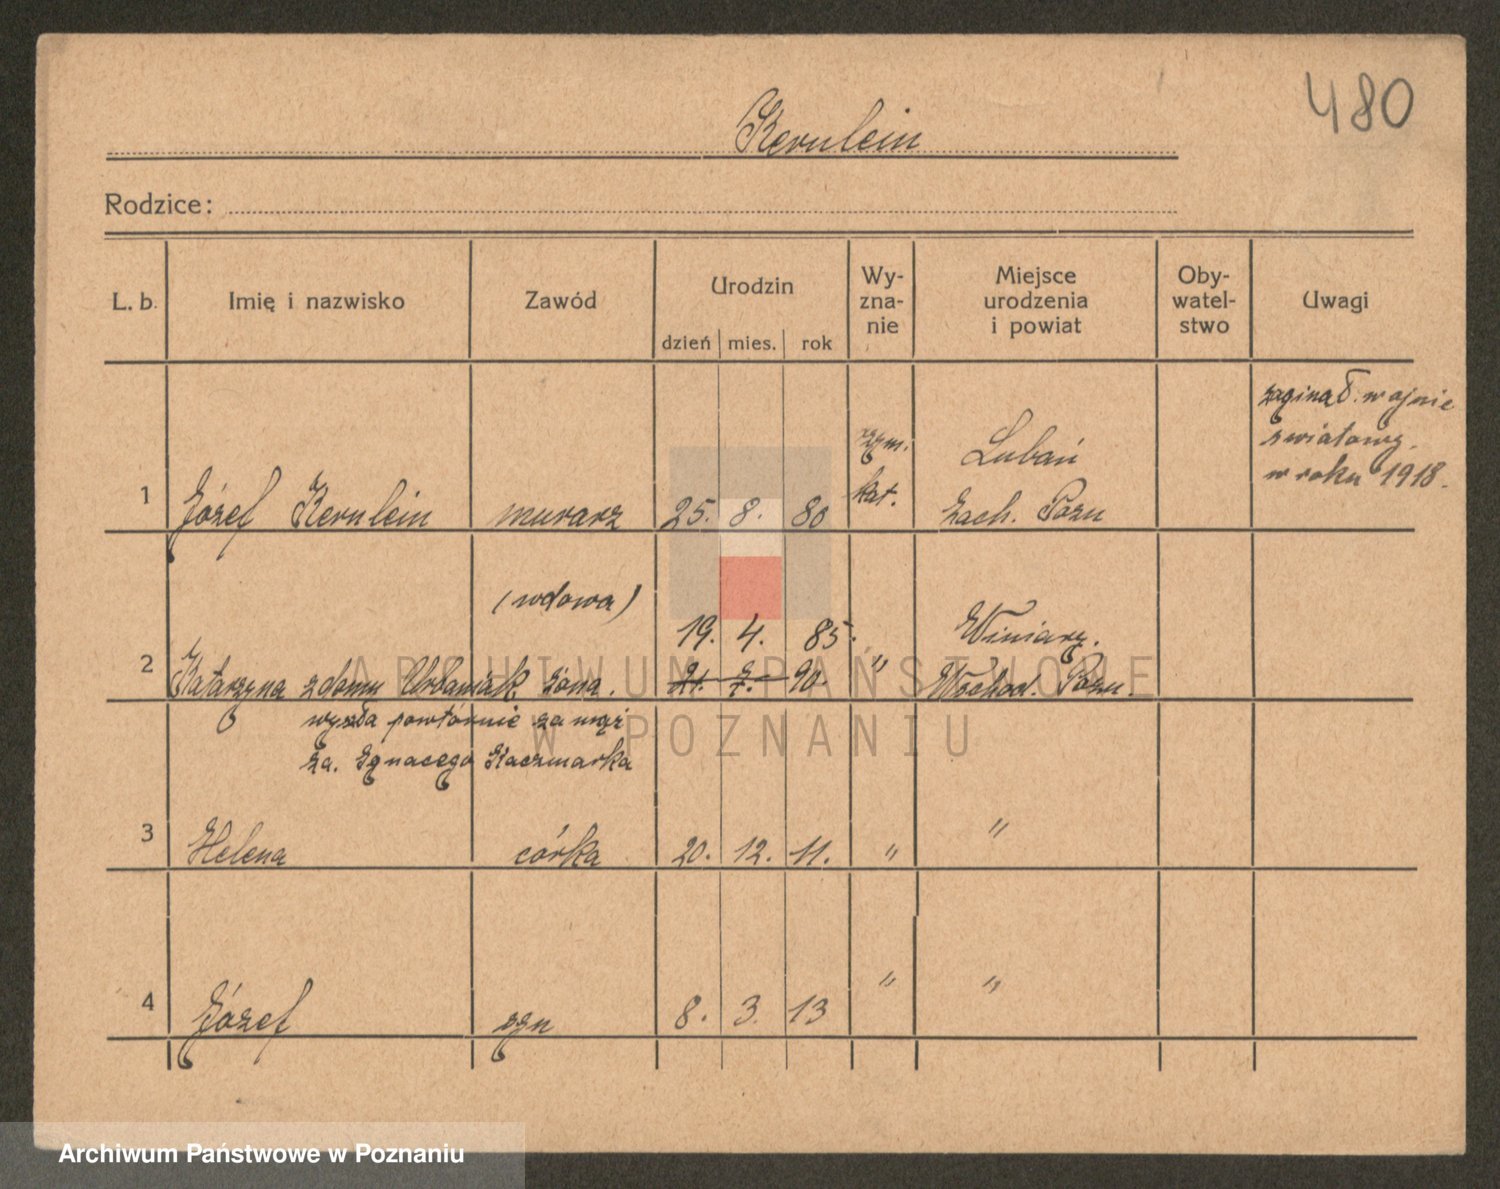 480
Kernlein
Rodzice:
L. b. Imię i nazwisko Zawód Urodzin Wy-
zna-
nie Miejsce
urodzenia
i powiat Oby-
watel-
stwo Uwagi
dzień mies. rok
zaginął wojnie
światowy.
w roku 1918.
1 Józef Kernlein murarz 25. 8. 80 rzym.
kat. Lubań
Zach. Pozn
(wdowa)
19. 4. 85. Winiary.
2 Katarzyna z domu Urbaniak żona. 21. 7. 90. " Wschod. Pozn.
wyszła powtórnie za mąż
za. Ignacego Kaczmarka
3 Helena córka 20. 12. 11. " "
4 Józef syn 8. 3. 13 " "
ARCHIWUM PAŃSTWOWE
W POZNANIU
Archiwum Państwowe w Poznaniu